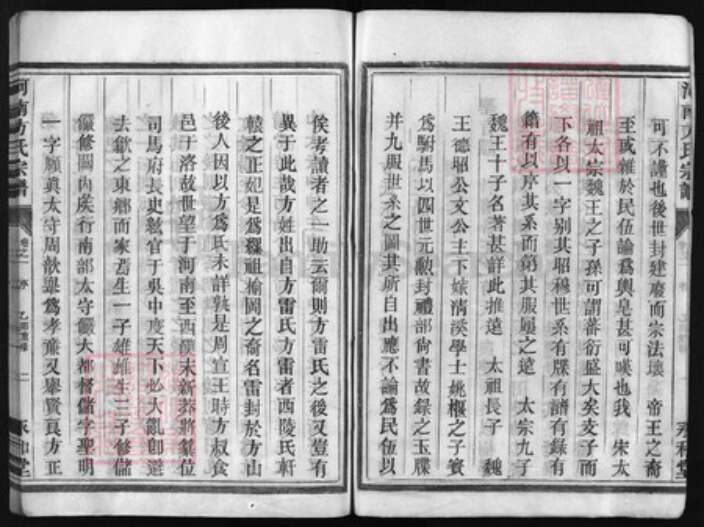 可不謹也後世封建廢而宗法壞　帝王之裔
至或雜於民伍論爲輿皂甚可嘆也我　宋太
祖太宗魏王之子孫可謂蕃衍盛大矣支子而
下各以一字别其昭穆世系有牒有譜有録有
籍有以序其系而第其服屬之遠　太宗九子
魏王十子名著甚詳此推遠　太祖長子　魏
王德昭公文公主下嫁清溪學士姚櫃之子寶
爲駙馬以四世元勳封禮部尚書故録之玉牒
并九服世系之圖其所自出應不淪爲民伍以
俟考讀者之一助云爾則方雷氏之後又豈有
異于此哉方姓出自方雷氏方雷者西陵氏軒
轅之正妃是爲纍祖榆罔之裔名雷封於方山
後人因以方爲氏未詳孰是周宣王時方叔食
邑于洛故世望于河南至西漢末新莽將篡位
司馬府長史紘官于吳中度天下必大亂卽道
去歙之東鄉而家焉生一子雄雄生三子修儲
儼修關內矦行南部太守儼大都督儲字聖明
一字頤眞太守周歆舉爲孝廉又舉賢良方正
河南方氏宗譜
卷之一
序
永和堂